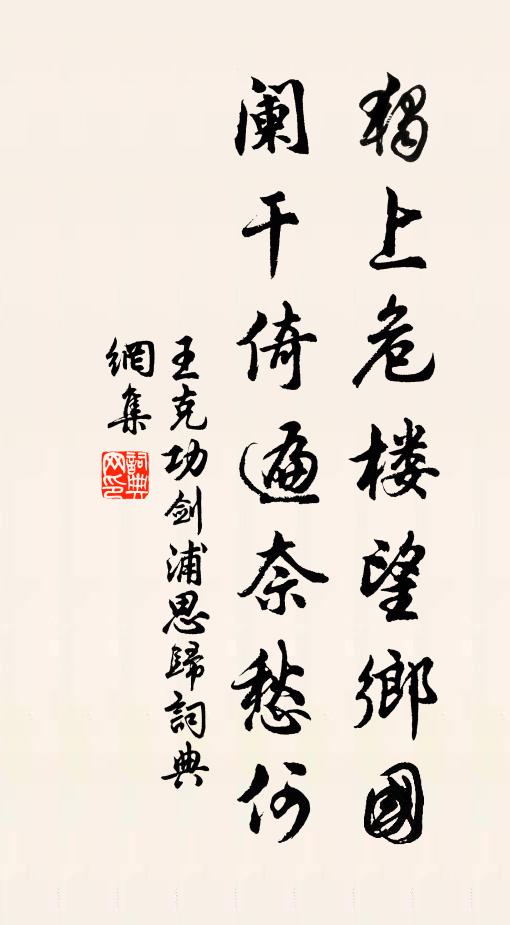 獨上危楼望鄉國
阑干倚遍奈愁何
王克功剑浦思歸詞典
網集
詞典網印